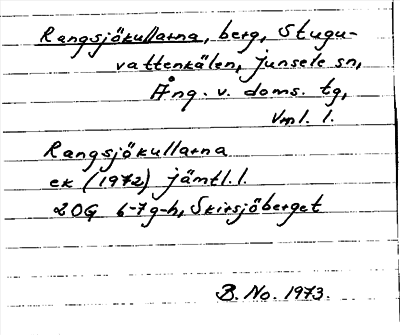 Rangsjökullarna, berg, Stugu-
vattenkälen, Junsele sn,
Ång. v. doms. tg,
Vnl. l.
Rangsjökullarna
ek (1972) jämtl. l.
20G 6-7g-h, Skirsjöberget
B. No. 1973.